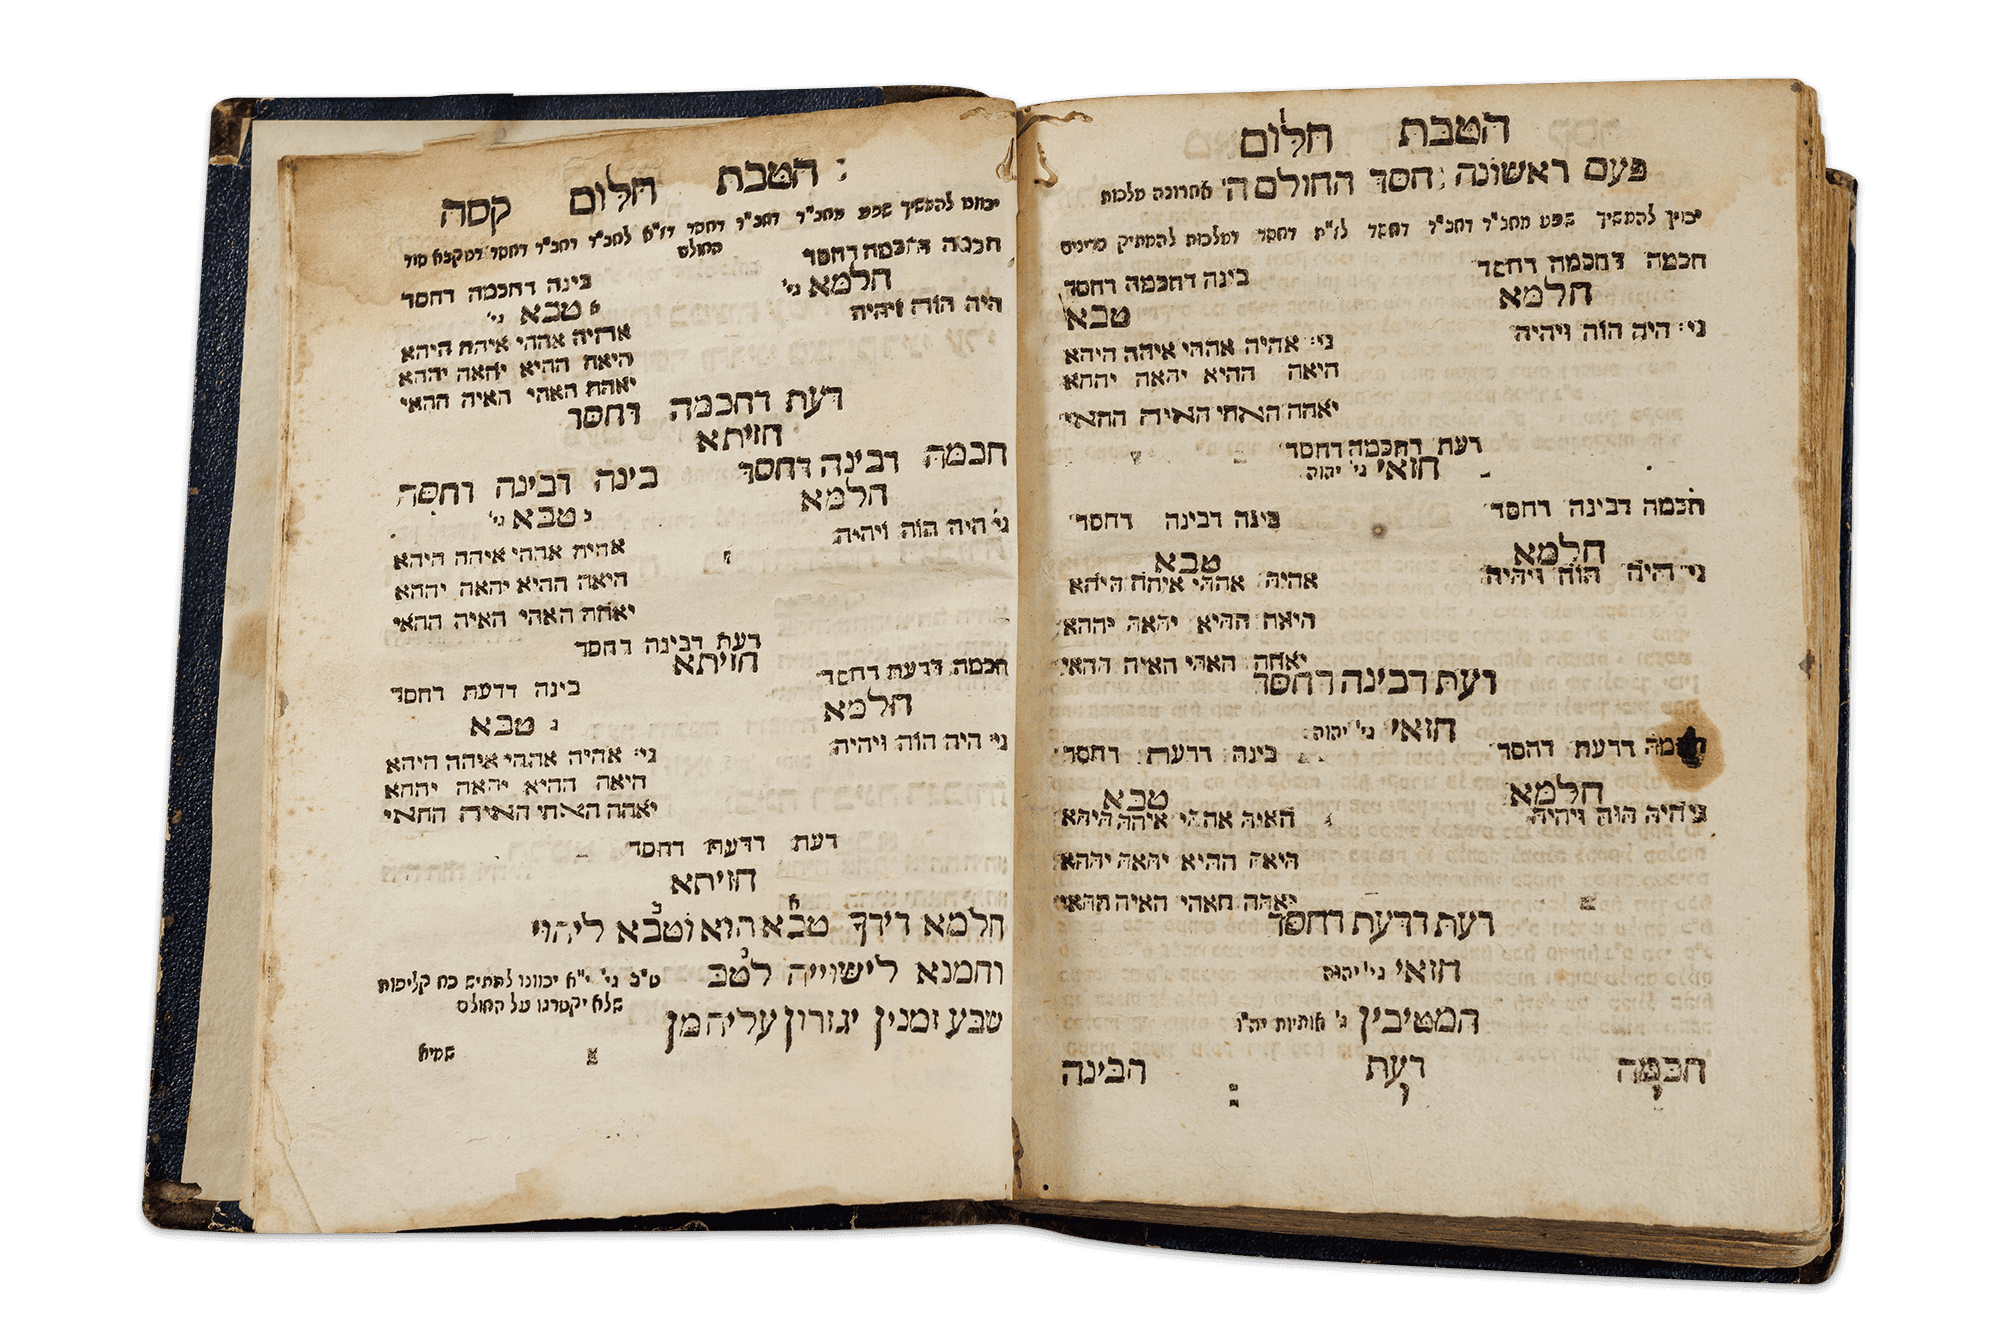 הטבת חלום
פעם ראשונה חסד החולם ה' אחרונה מלכות
יכוין להמשיך שפע מחב"ד דחב"ד דחסד לז"ת דחסד דמלכות להמתיק מדינים
חכמה דחכמה דחסד בינה דחכמה דחסד
חלמא טבא
גי' היה הוה ויהיה גי' אהיה אההי איהה היהא
היאה ההיא יהאה יההא
יאהה האהי האיה ההאי
דעת דחכמה דחסד
חזאי גי' יהוה
חכמה דבינה דחסד בינה דבינה דחסד
חלמא טבא
גי' היה הוה ויהיה אהיה אההי איהה היהא
היאה ההיא יהאה יההא
יאהה האהי האיה ההאי
דעת דבינה דחסד
חזאי גי' יהוה
חכמה דדעת דחסד בינה דדעת דחסד
חלמא טבא
גי' היה הוה ויהיה האיה אההי איהה היהא
היאה ההיא יהאה יההא
יאהה האהי האיה ההאי
דעת דדעת דחסד
חזאי גי' יהוה
המטיבין ג' אותיות יה"ו
חכמה דעת הבינה
י ו
הטבת חלום קסה
יכוונו להמשיך שפע מחב"ד דחב"ד דחסד דז"א לחב"ד דחב"ד דחסד דנוקבא סוד
החולם
חכמה דחכמה דחסד בינה דחכמה דחסד
חלמא גי' טבא גי'
היה הוה ויהיה אהיה אההי איהה היהא
היאה ההיא יהאה יההא
יאהה האהי האיה ההאי
דעת דחכמה דחסד
חזיתא
חכמה דבינה דחסד בינה דבינה דחסד
חלמא טבא גי'
גי' היה הוה ויהיה אהיה אההי איהה היהא
היאה ההיא יהאה יההא
יאהה האהי האיה ההאי
דעת דבינה דחסד
חזיתא
חכמה דדעת דחסד בינה דדעת דחסד
חלמא טבא
גי' היה הוה ויהיה גי' אהיה אההי איהה היהא
היאה ההיא יהאה יההא
יאהה האהי האיה ההאי
דעת דדעת דחסד
חזיתא
חלמא דידך טבא הוא וטבא ליהוי
רחמנא לישוייה לטב ט"ב גי' י"א יכוונו להתיש כח קליפות
שלא יקטרגו על החולם
שבע זמנין יגזרון עליה מן
שמיא